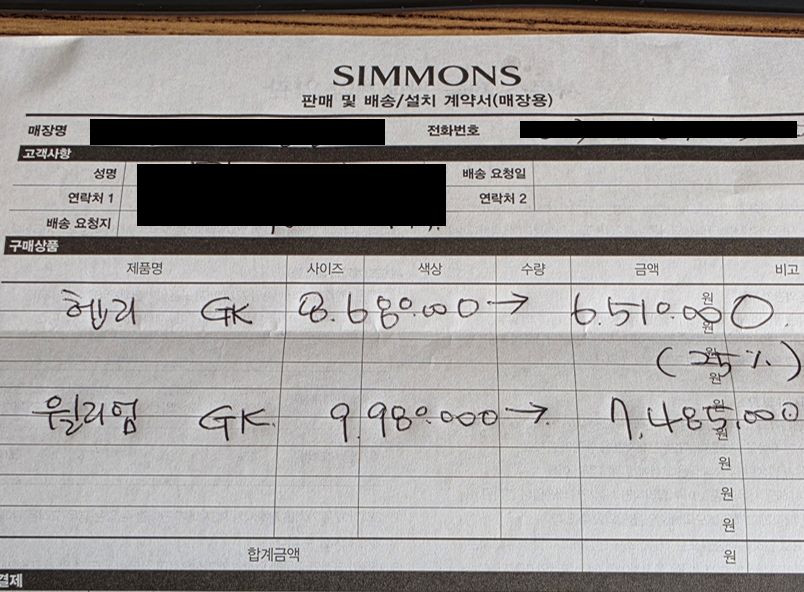 SIMMONS
판매 및 배송/설치 계약서(매장용)
매장명 전화번호
고객사항
성명 배송 요청일
연락처 1 연락처 2
배송 요청지
구매상품
제품명 사이즈 색상 수량 금액 비고
원
헨리 GK 8.680.000 → 6.510.000
원
원
(25%)
원
원
윌리엄 GK. 9.980.000 → 7.485.000
원
원
원
원
합계금액 원
결제